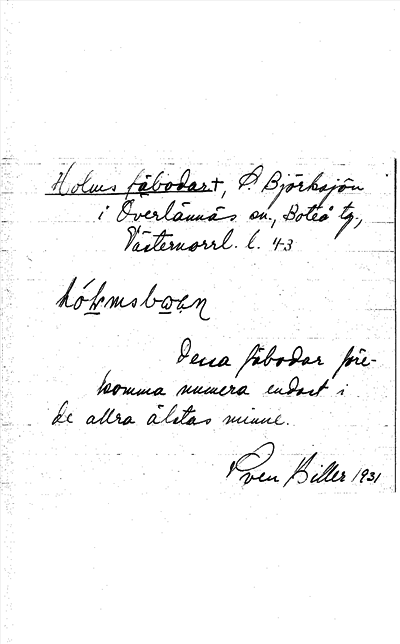 Holms fäbodar†, S. Björksjön
i Överlännäs sn., Boteå tg.,
Västernorrl. l. 43
hó̀lmsbwæn
Dessa fäbodar före-
komma numera endast i
de allra älstas minne.
Sven Biller 1931